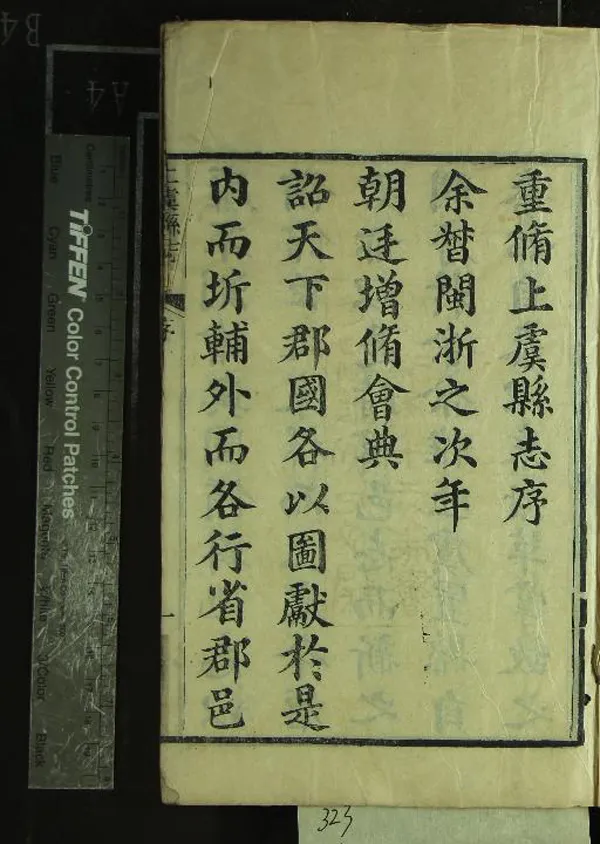 重脩上虞縣志序
余督閩浙之次年
朝廷增脩會典
詔天下郡國各以圖獻於是
内而圻輔外而各行省郡邑
上虞縣志
序
一
323
TIFFEN Color Control Patches
Blue
Cyan
Green
Yellow
Red
Magenta
White
3/Color
Black
Centimetres
A4
B4